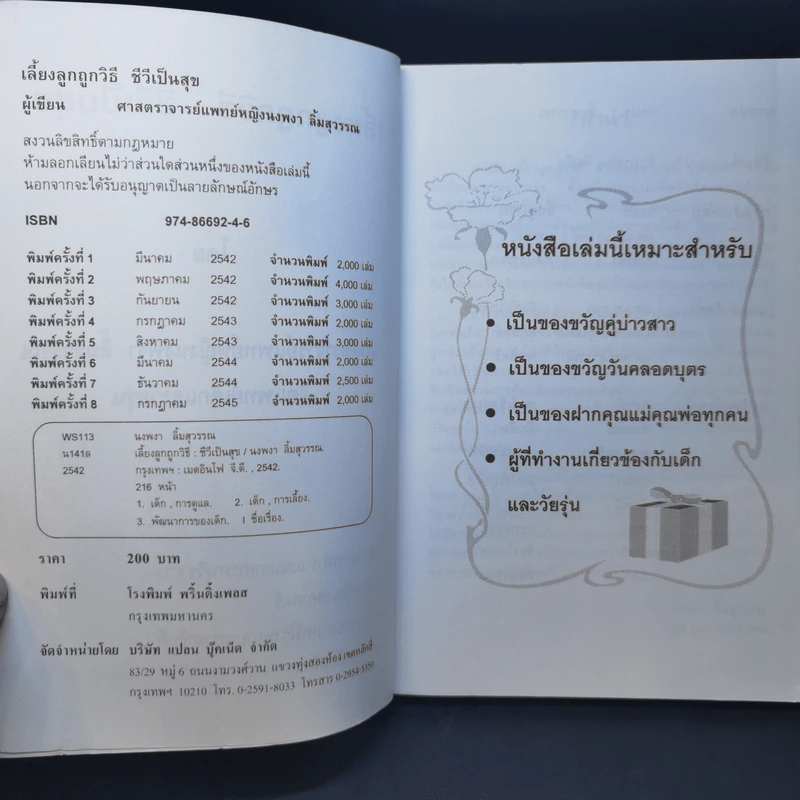 เลี้ยงลูกถูกวิธี ชีวีเป็นสุข
ผู้เขียน ศาสตราจารย์แพทย์หญิงนงพงา ลิ้มสุวรรณ
สงวนลิขสิทธิ์ตามกฎหมาย
ห้ามลอกเลียนไม่ว่าส่วนใดส่วนหนึ่งของหนังสือเล่มนี้
นอกจากจะได้รับอนุญาตเป็นลายลักษณ์อักษร
ISBN 974-86692-4-6
พิมพ์ครั้งที่ 1 มีนาคม 2542 จำนวนพิมพ์ 2,000 เล่ม
พิมพ์ครั้งที่ 2 พฤษภาคม 2542 จำนวนพิมพ์ 4,000 เล่ม
พิมพ์ครั้งที่ 3 กันยายน 2542 จำนวนพิมพ์ 3,000 เล่ม
พิมพ์ครั้งที่ 4 กรกฎาคม 2543 จำนวนพิมพ์ 2,000 เล่ม
พิมพ์ครั้งที่ 5 สิงหาคม 2543 จำนวนพิมพ์ 3,000 เล่ม
พิมพ์ครั้งที่ 6 มีนาคม 2544 จำนวนพิมพ์ 2,000 เล่ม
พิมพ์ครั้งที่ 7 ธันวาคม 2544 จำนวนพิมพ์ 2,500 เล่ม
พิมพ์ครั้งที่ 8 กรกฎาคม 2545 จำนวนพิมพ์ 2,000 เล่ม
WS113 นงพงา ลิ้มสุวรรณ
น141ล เลี้ยงลูกถูกวิธี : ชีวีเป็นสุข / นงพงา ลิ้มสุวรรณ.
2542 กรุงเทพฯ : เมดอินโฟ จี.ดี., 2542.
216 หน้า
1. เด็ก , การดูแล. 2. เด็ก , การเลี้ยง.
3. พัฒนาการของเด็ก. I ชื่อเรื่อง.
ราคา 200 บาท
พิมพ์ที่ โรงพิมพ์ พริ้นติ้งเพลส
กรุงเทพมหานคร
จัดจำหน่ายโดย บริษัท แปลน บุ๊คเน็ต จำกัด
83/29 หมู่ 6 ถนนงามวงศ์วาน แขวงทุ่งสองห้อง เขตหลักสี่
กรุงเทพฯ 10210 โทร. 0-2591-8033 โทรสาร 0-2954-5350
หนังสือเล่มนี้เหมาะสำหรับ
• เป็นของขวัญคู่บ่าวสาว
• เป็นของขวัญวันคลอดบุตร
• เป็นของฝากคุณแม่คุณพ่อทุกคน
• ผู้ที่ทำงานเกี่ยวข้องกับเด็ก
และวัยรุ่น